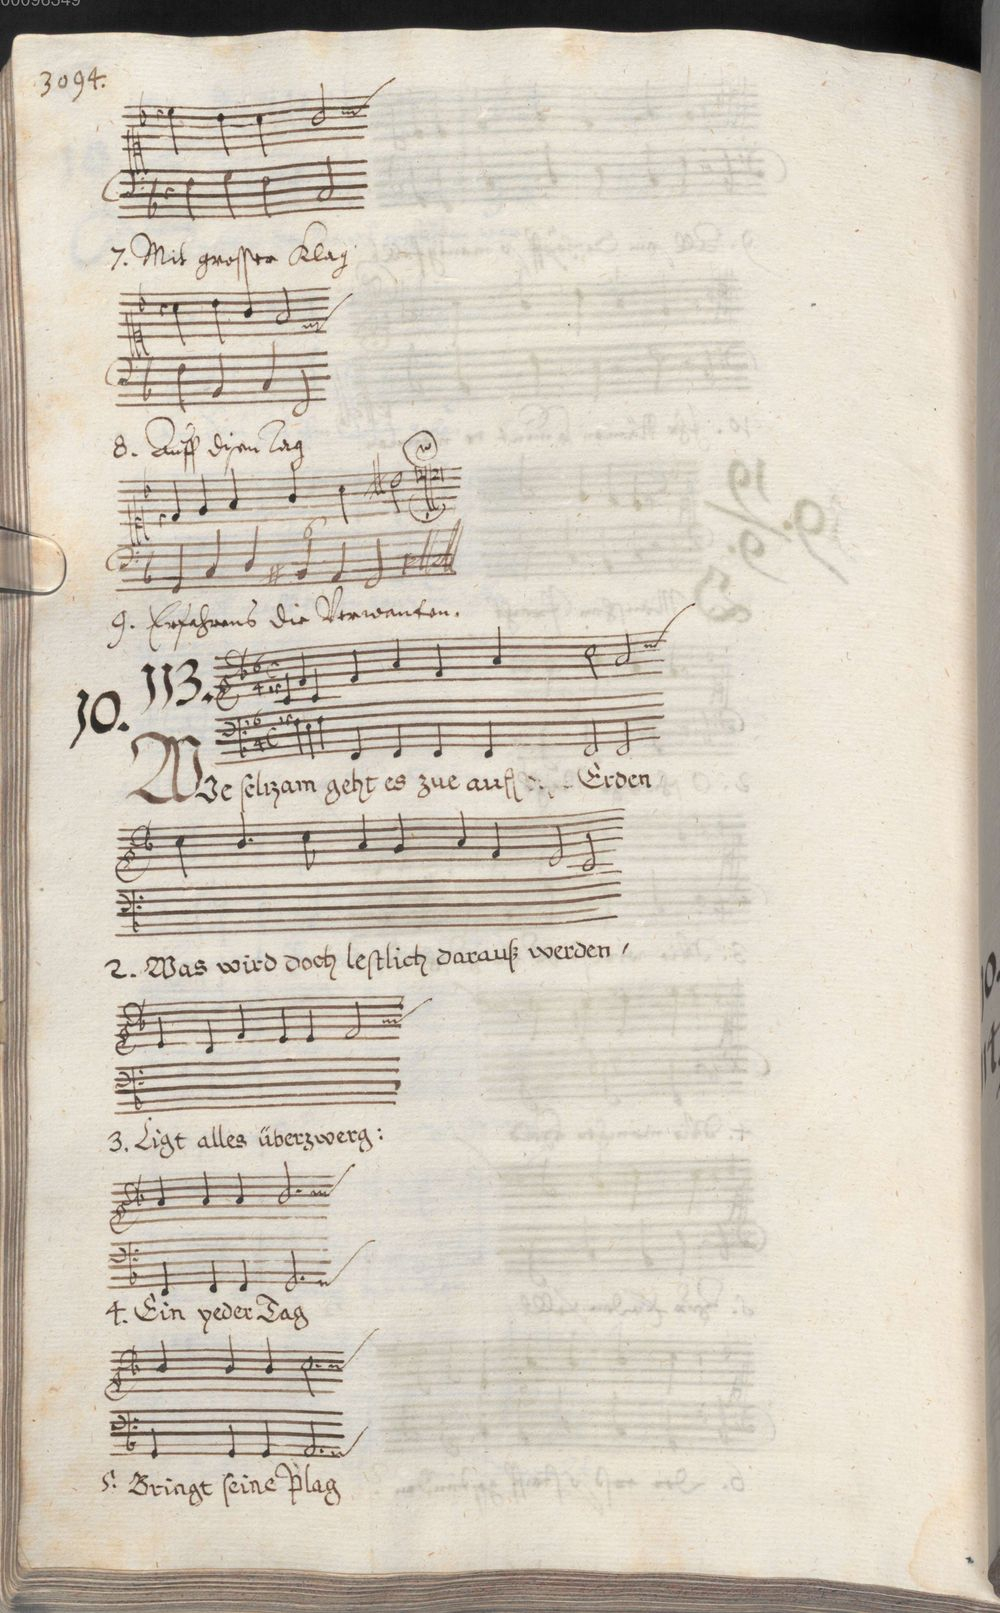 3094.
7. Mit grosser Klag
8. Auff disen Tag
9. Erfahrens die Verwanten.
10. 113.
Wie seltzam geht es zue auff Erden
2. Was wird doch lestlich darauß werden /
3. Ligt alles überzwerg:
4. Ein yeder Tag
5. Bringt seine Plag